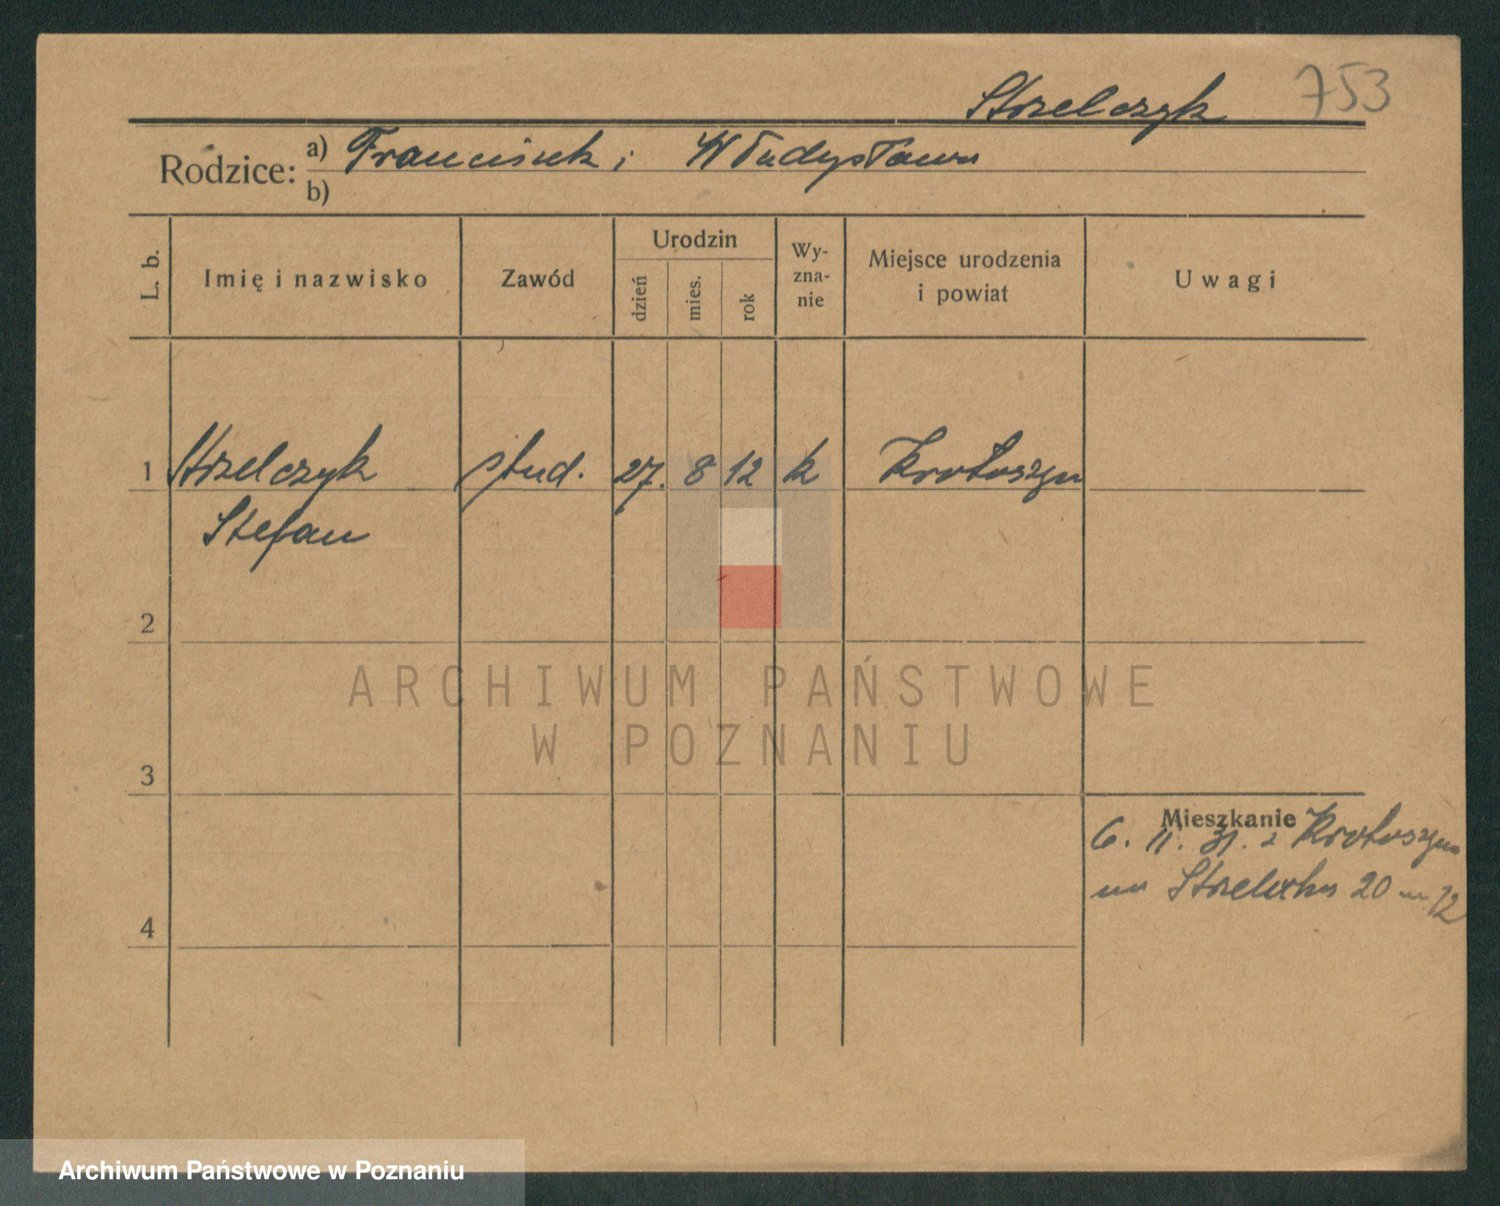 Strzelczyk 753
Rodzice: a) Franciszek i Władysława
b)
L. b.
Imię i nazwisko
Zawód
Urodzin
dzień
mies.
rok
Wy-
zna-
nie
Miejsce urodzenia
i powiat
Uwagi
1 Strzelczyk stud. 27. 8 12 k Krotoszyn
Stefan
2
ARCHIWUM PAŃSTWOWE
W POZNANIU
3
Mieszkanie
6. 11. 31. z Krotoszyna
na 20 12
4
Archiwum Państwowe w Poznaniu